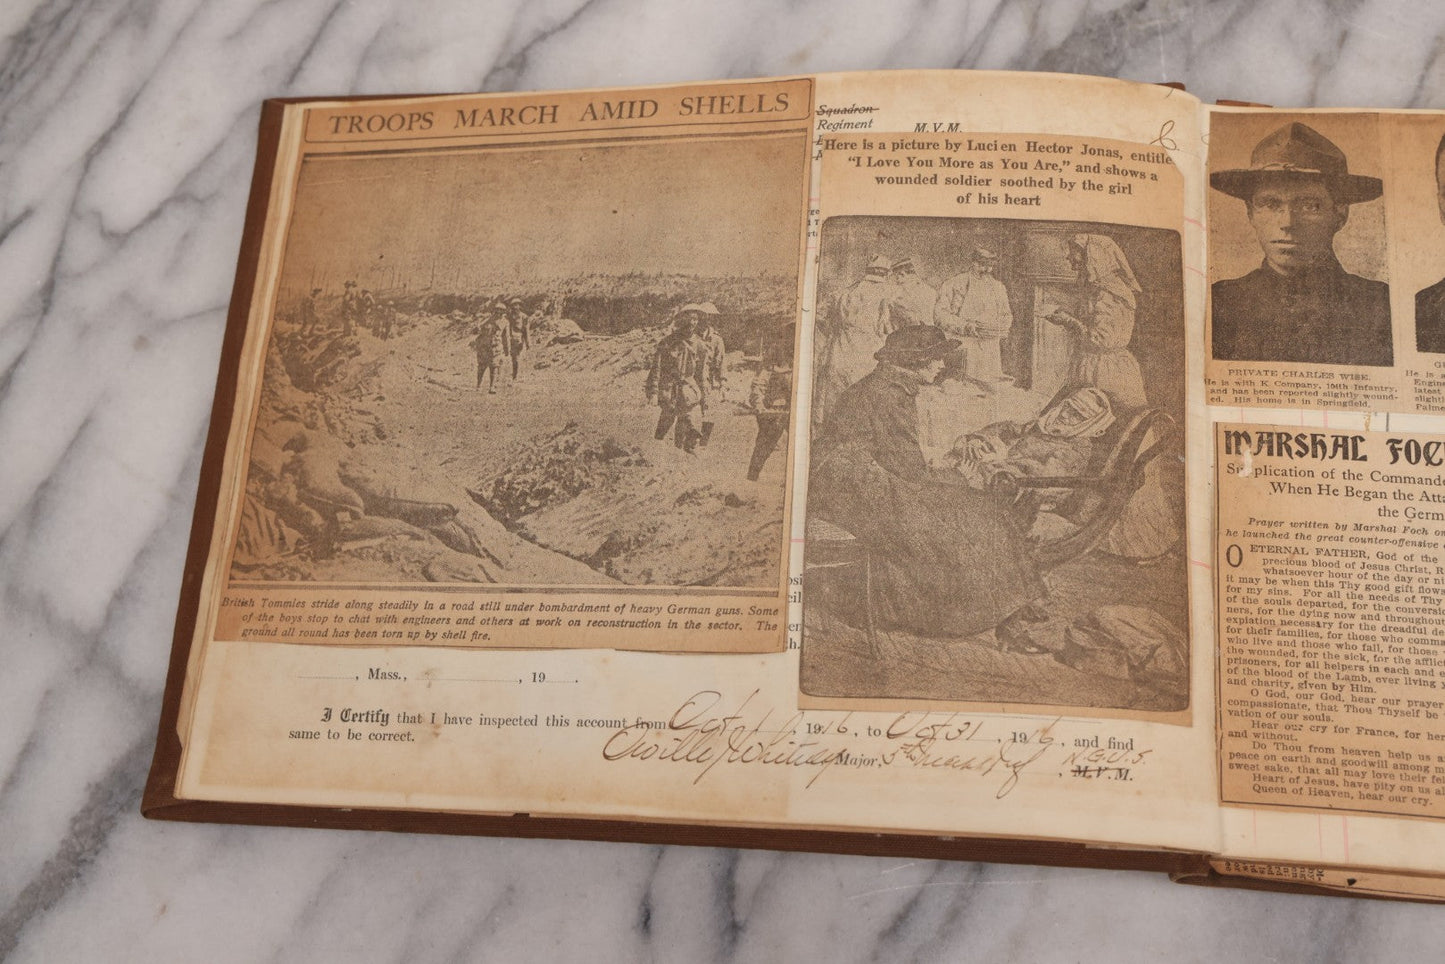 TROOPS MARCH AMID SHELLS
British Tommies stride along steadily in a road still under bombardment of heavy German guns. Some
of the boys stop to chat with engineers and others at work on reconstruction in the sector. The
ground all round has been torn up by shell fire.
Squadron
Regiment
M.V.M.
6.
Here is a picture by Lucien Hector Jonas, entitle
"I Love You More as You Are," and shows a
wounded soldier soothed by the girl
of his heart
, Mass., , 19 .
I Certify that I have inspected this account from Oct 1, 1916, to Oct 31, 1916, and find
same to be correct.
Major, 5th N.G.U.S.
M.V.M.
PRIVATE CHARLES WISE.
He is with K Company, 104th Infantry,
and has been reported slightly wound-
ed. His home is in Springfield.
He is
Engine
latest
slightl
Palme
MARSHAL FOC
Supplication of the Commande
When He Began the Atta
the Germ
Prayer written by Marshal Foch on
he launched the great counter-offensive
O ETERNAL FATHER, God of the
precious blood of Jesus Christ, R
whatsoever hour of the day or ni
it may be when this Thy good gift flows
for my sins. For all the needs of Thy
of the souls departed, for the conversio
ners, for the dying now and throughout
expiation necessary for the dreadful de
for their families, for those who comma
who live and those who fall, for those
the wounded, for the sick, for the afflic
prisoners, for all helpers in each and e
of the blood of the Lamb, over living
and charity, given by Him.
O God, our God, hear our prayer
compassionate, that Thou Thyself be
vation of our souls.
Hear our cry for France, for her
and without.
Do Thou from heaven help us a
peace on earth and goodwill among m
sweet sake, that all may love their fel
Heart of Jesus, have pity on us al
Queen of Heaven, hear our cry.